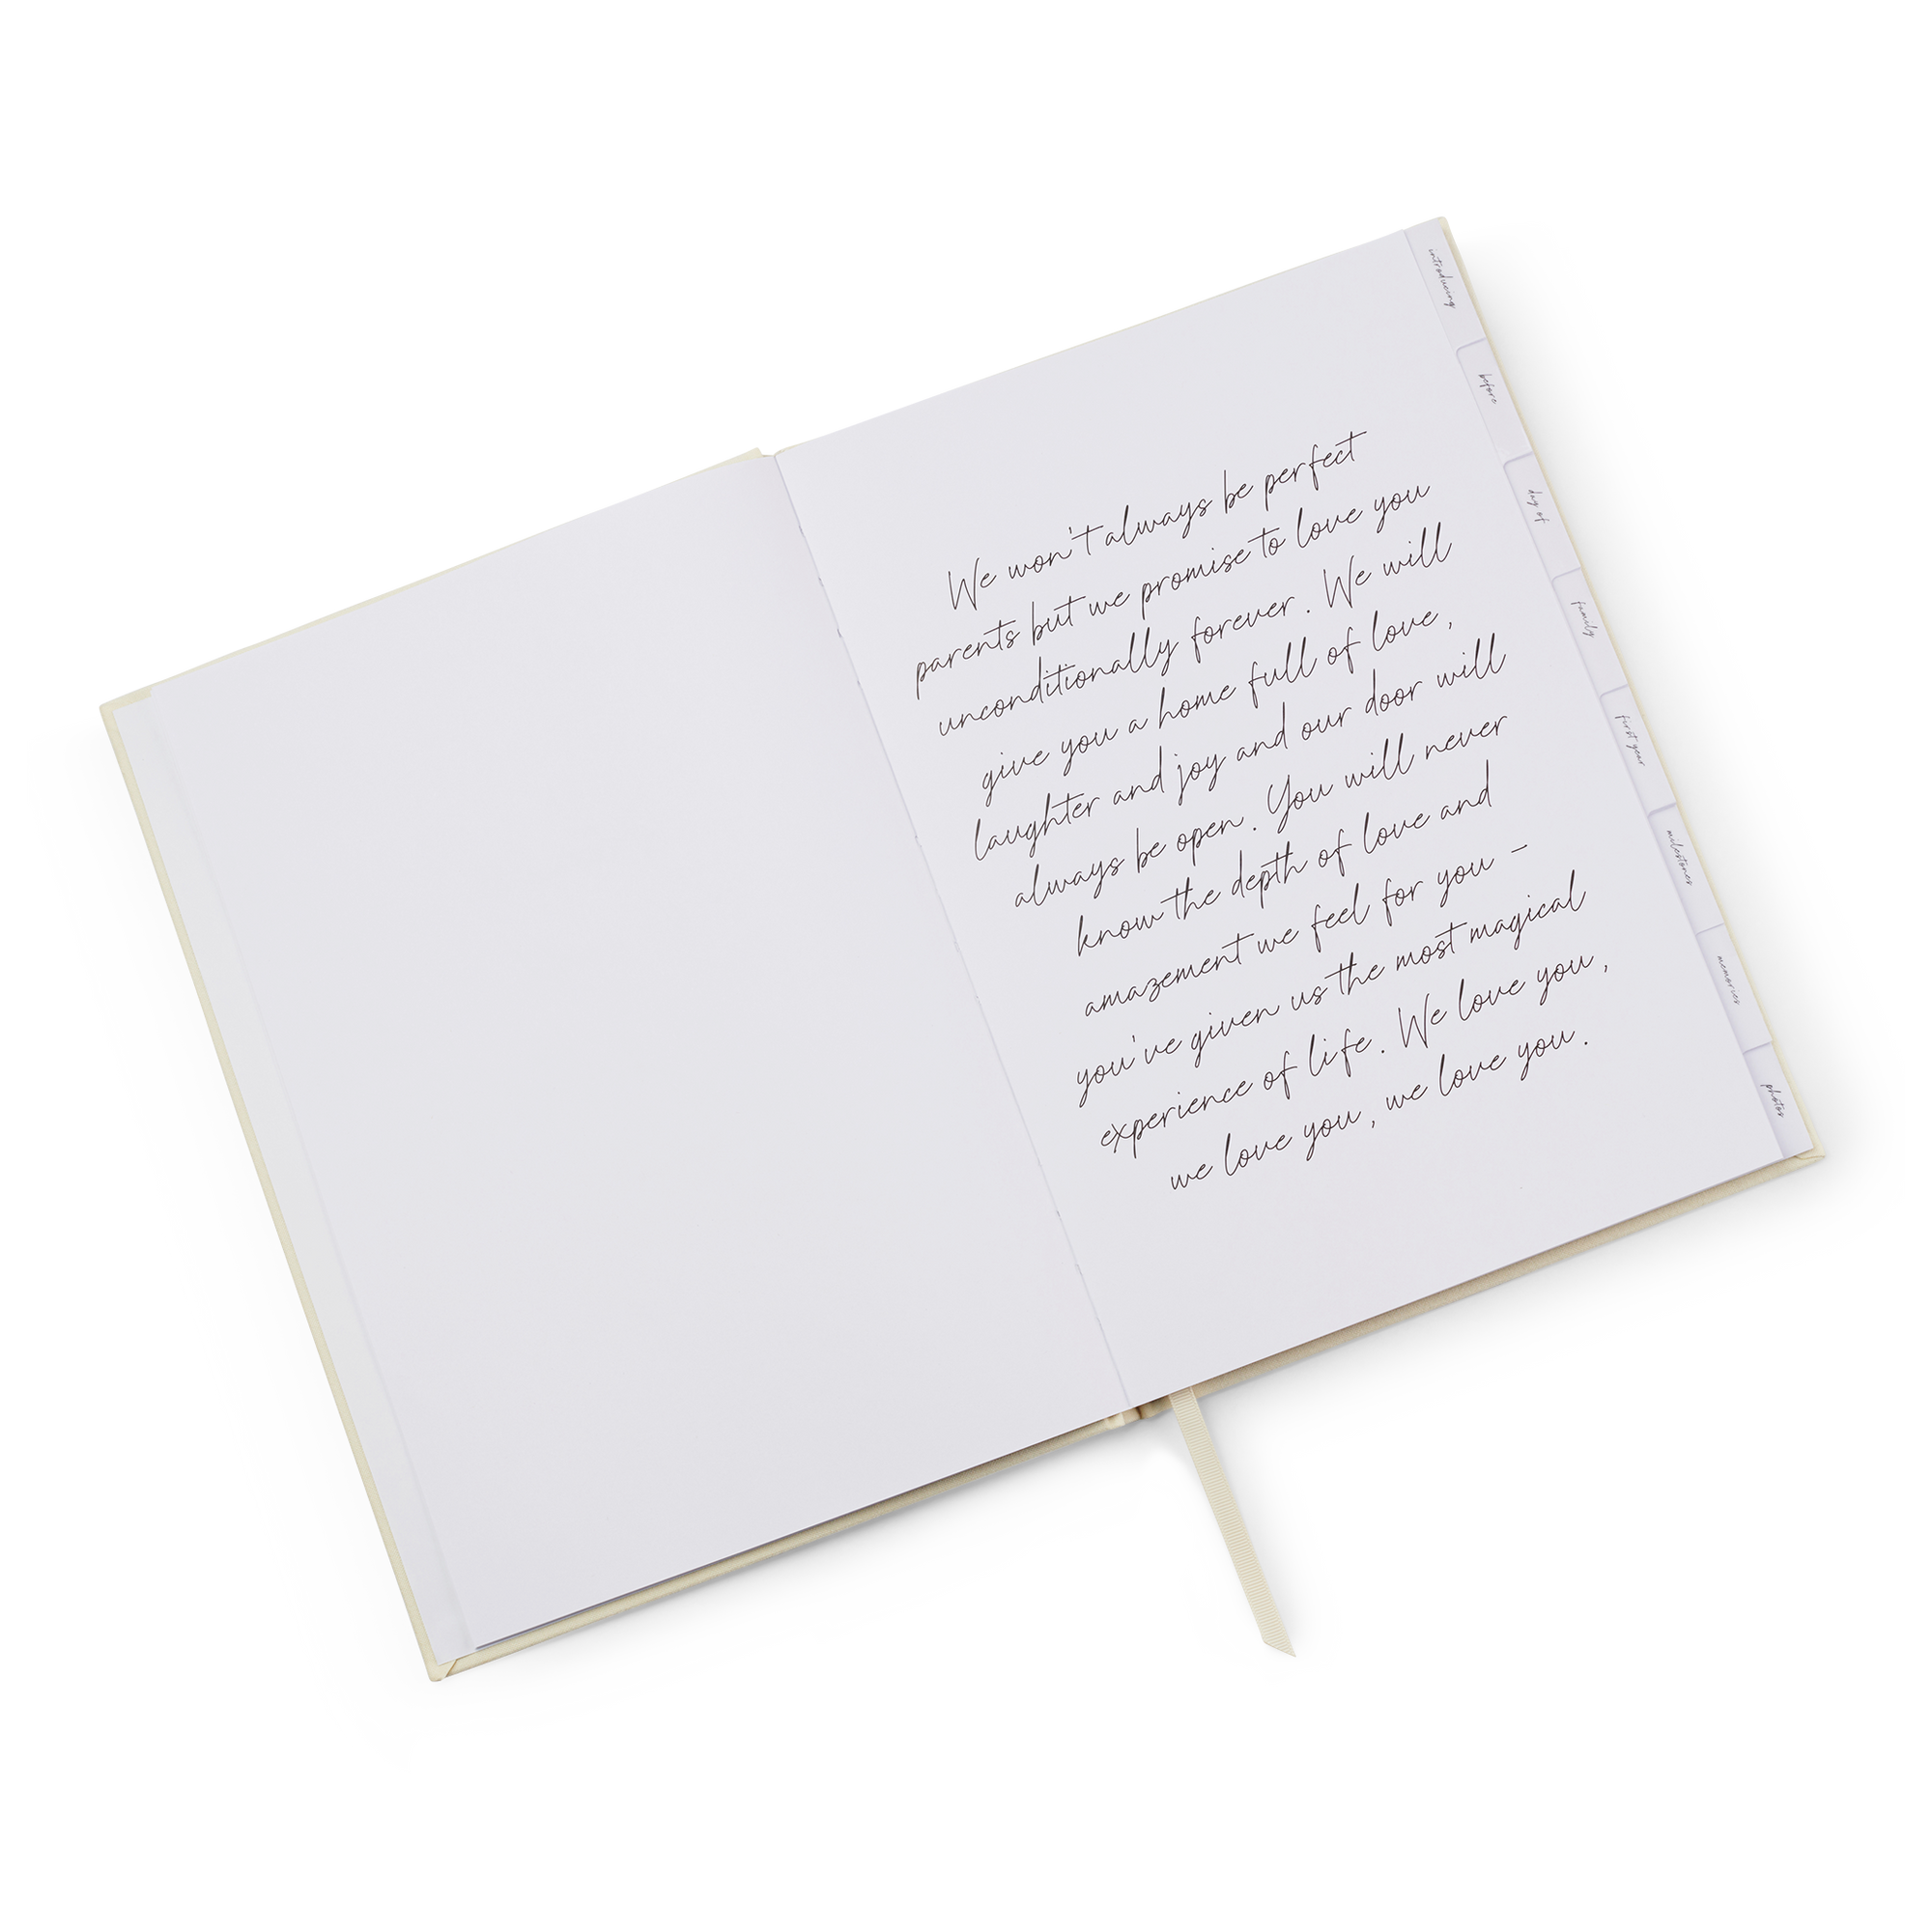 We won't always be perfect
parents but we promise to love you
unconditionally forever. We will
give you a home full of love,
laughter and joy and our door will
always be open. You will never
know the depth of love and
amazement we feel for you -
you've given us the most magical
experience of life. We love you,
we love you, we love you.
introducing
before
day of
family
first year
milestones
memories
photos